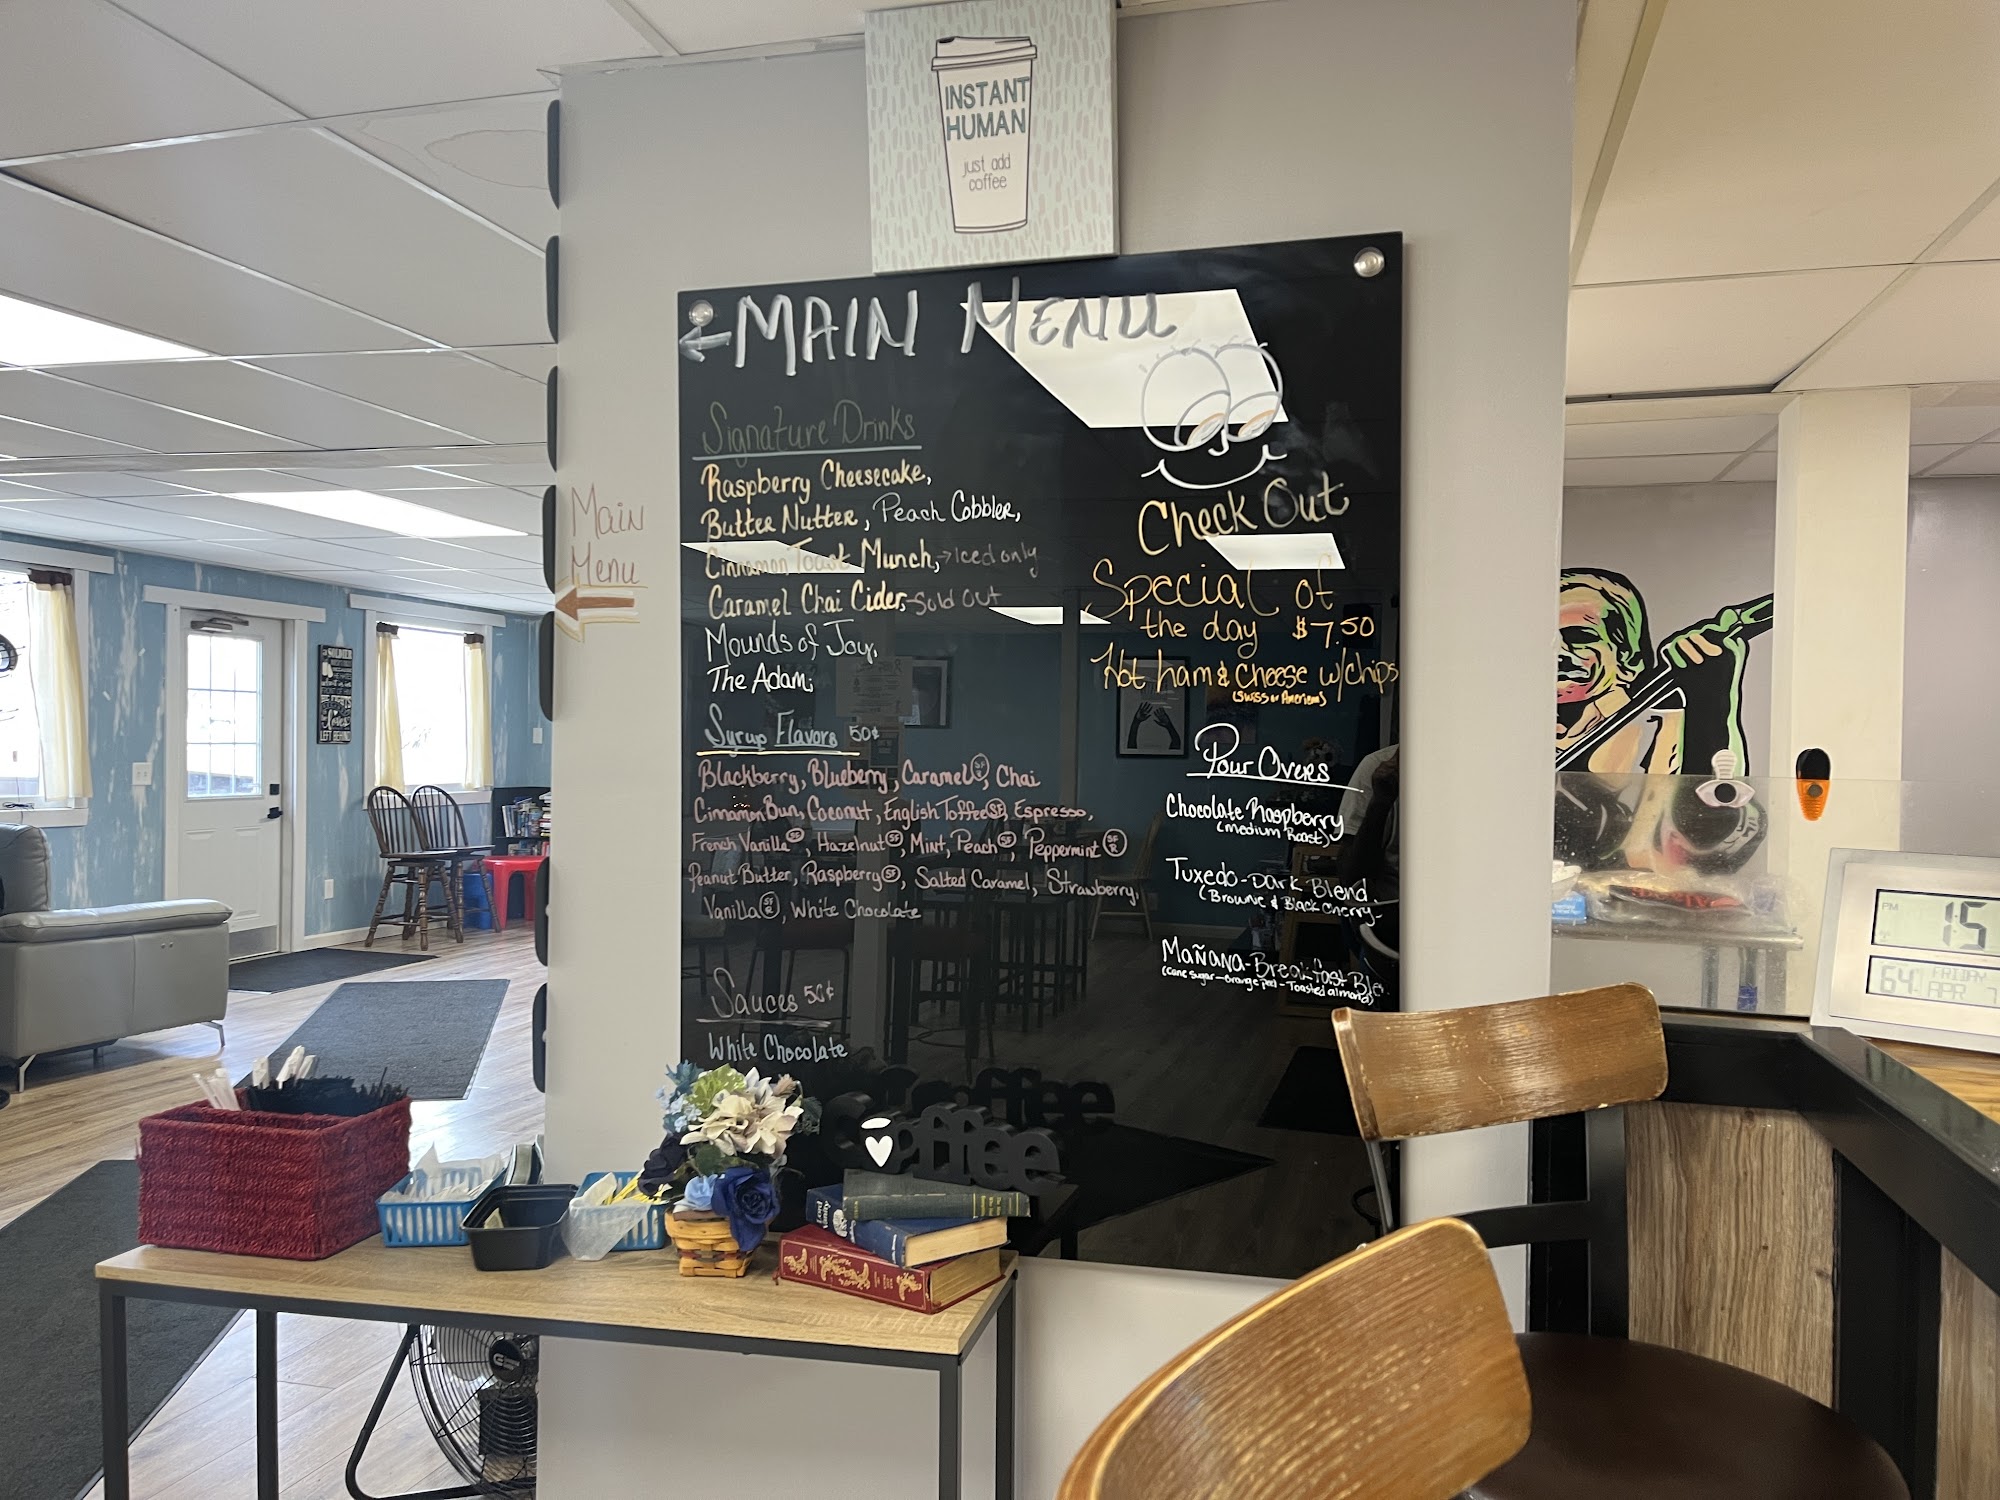 INSTANT
HUMAN
just add
coffee
← MAIN MENU
Signature Drinks
Raspberry Cheesecake,
Butter Nutter, Peach Cobbler,
Cinnamon Toast Munch, → Iced only
Caramel Chai Cider, - Sold Out
Mounds of Joy,
The Adam;
Syrup Flavors 50¢
Blackberry, Blueberry, Caramel SF R, Chai
Cinnamon Bun, Coconut, English Toffee SF, Espresso,
French Vanilla SF, Hazelnut SF, Mint, Peach SF, Peppermint SF R
Peanut Butter, Raspberry SF, Salted Caramel, Strawberry,
Vanilla SF R, White Chocolate
Sauces 50¢
White Chocolate
Check Out
Special of
the day $7.50
Hot ham & cheese w/chips
(Swiss or American)
Pour Overs
Chocolate Raspberry
(Medium Roast)
Tuxedo - Dark Blend
(Brownie & Black Cherry
Mañana - Breakfast Ble
(Cane sugar - Orange peel - Toasted almond)
Main
Menu
coffee
SOLDIER
LEFT BEHIND
PM
1:5
64
FRIDAY
APR 7